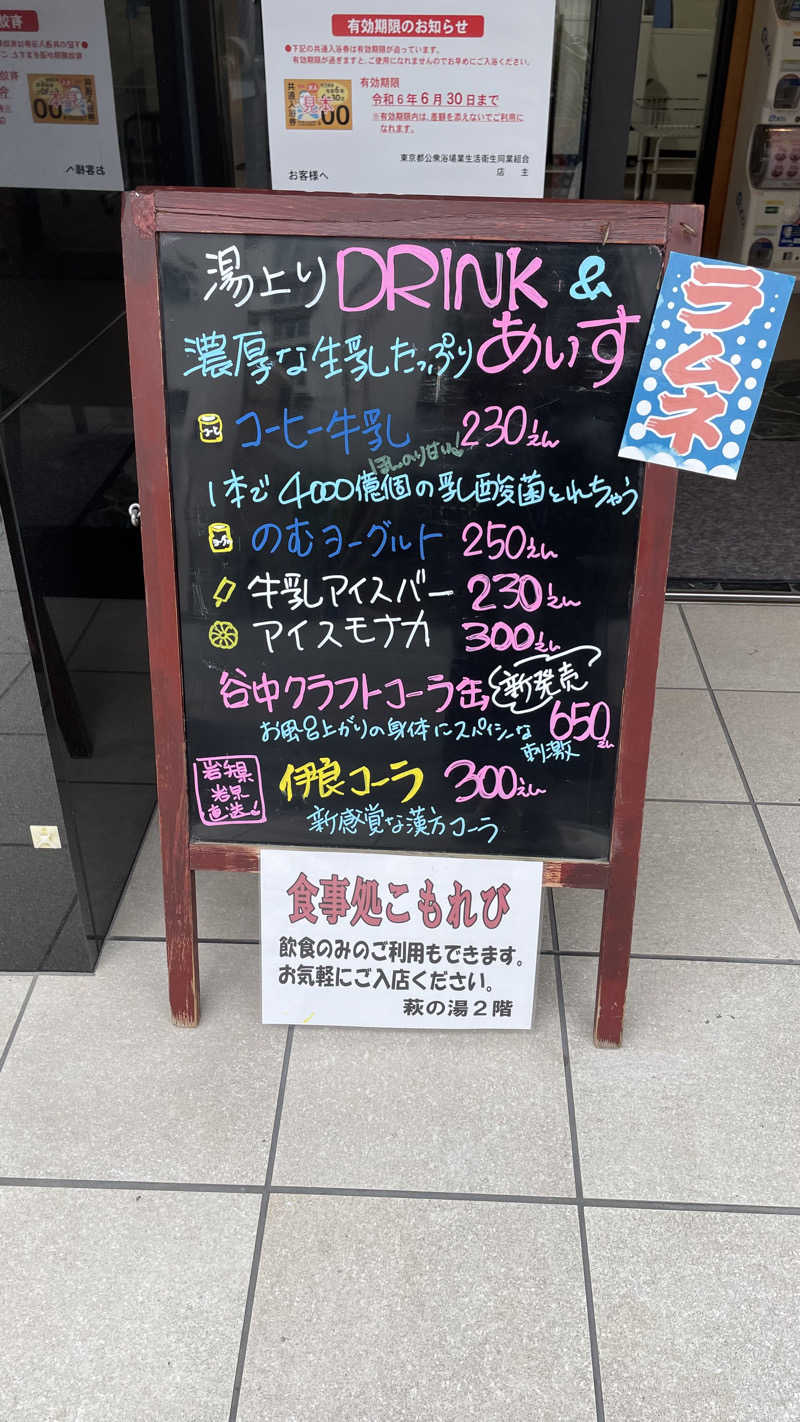 有効期限のお知らせ
●下記の共通入浴券は有効期限が迫っています。
有効期限が過ぎますと、ご使用になれませんのでお早めにご入浴ください。
共通入浴券
見本
00
有効期限
令和6年6月30日まで
※有効期限内は、差額を添えないでご利用に
なれます。
東京都公衆浴場業生活衛生同業組合
店 主
お客様へ
湯上りDRINK &
濃厚な生乳たっぷり あいす
ラムネ
コーヒー牛乳 230えん
ほんのり甘い
1本で4000億個の乳酸菌とれちゃう
のむヨーグルト 250えん
牛乳アイスバー 230えん
アイスモナカ 300えん
谷中クラフトコーラ缶 新発売
650えん
お風呂上がりの身体にスパイシーな
刺激
岩手県
直送!
伊良コーラ 300えん
新感覚な漢方コーラ
食事処こもれび
飲食のみのご利用もできます。
お気軽にご入店ください。
萩の湯2階